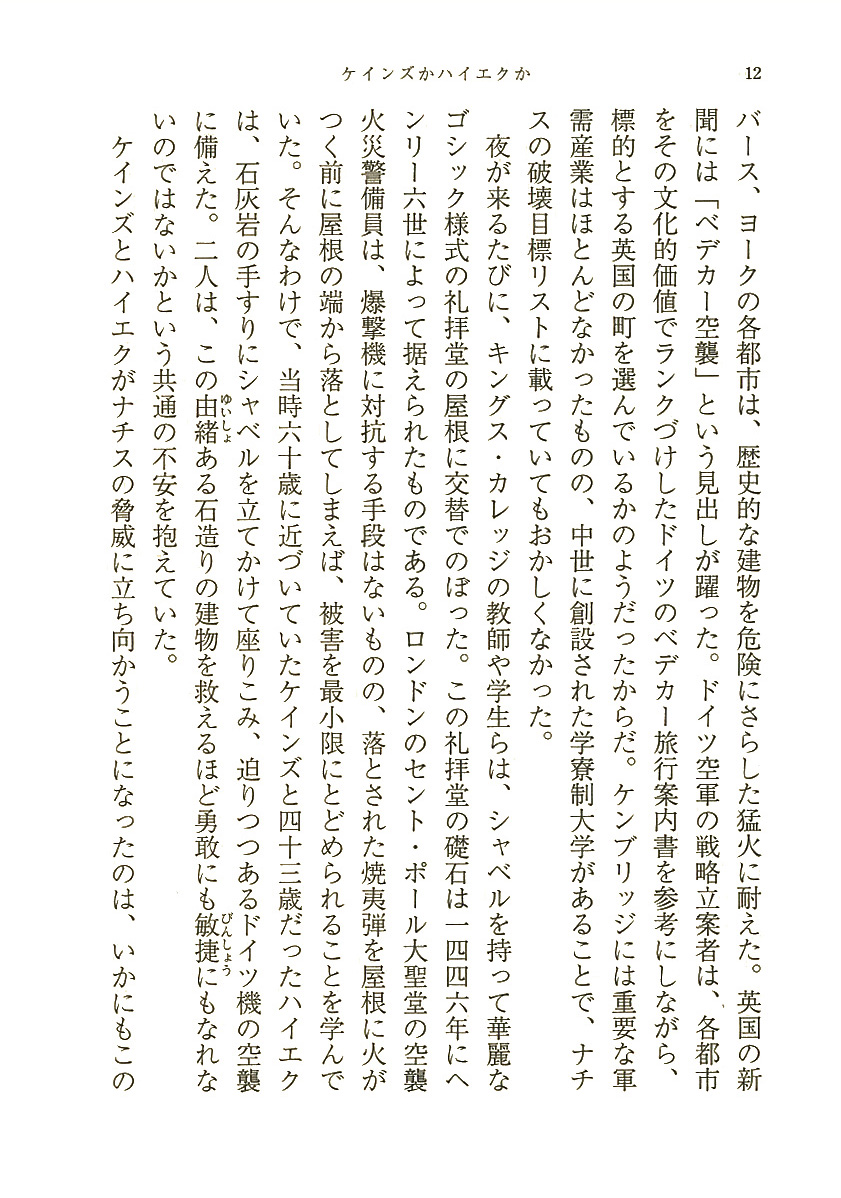 12
ケインズかハイエクか
バース、ヨークの各都市は、歴史的な建物を危険にさらした猛火に耐えた。英国の新
聞には「ベデカー空襲」という見出しが躍った。ドイツ空軍の戦略立案者は、各都市
をその文化的価値でランクづけしたドイツのベデカー旅行案内書を参考にしながら、
標的とする英国の町を選んでいるかのようだったからだ。ケンブリッジには重要な軍
需産業はほとんどなかったものの、中世に創設された学寮制大学があることで、ナチ
スの破壊目標リストに載っていてもおかしくなかった。
夜が来るたびに、キングス・カレッジの教師や学生らは、シャベルを持って華麗な
ゴシック様式の礼拝堂の屋根に交替でのぼった。この礼拝堂の礎石は一四四六年にヘ
ンリー六世によって据えられたものである。ロンドンのセント・ポール大聖堂の空襲
火災警備員は、爆撃機に対抗する手段はないものの、落とされた焼夷弾を屋根に火が
つく前に屋根の端から落としてしまえば、被害を最小限にとどめられることを学んで
いた。そんなわけで、当時六十歳に近づいていたケインズと四十三歳だったハイエク
は、石灰岩の手すりにシャベルを立てかけて座りこみ、迫りつつあるドイツ機の空襲
に備えた。二人は、この由緒ある石造りの建物を救えるほど勇敢にも敏捷にもなれな
ゆいしょ
びんしょう
いのではないかという共通の不安を抱えていた。
ケインズとハイエクがナチスの脅威に立ち向かうことになったのは、いかにもこの